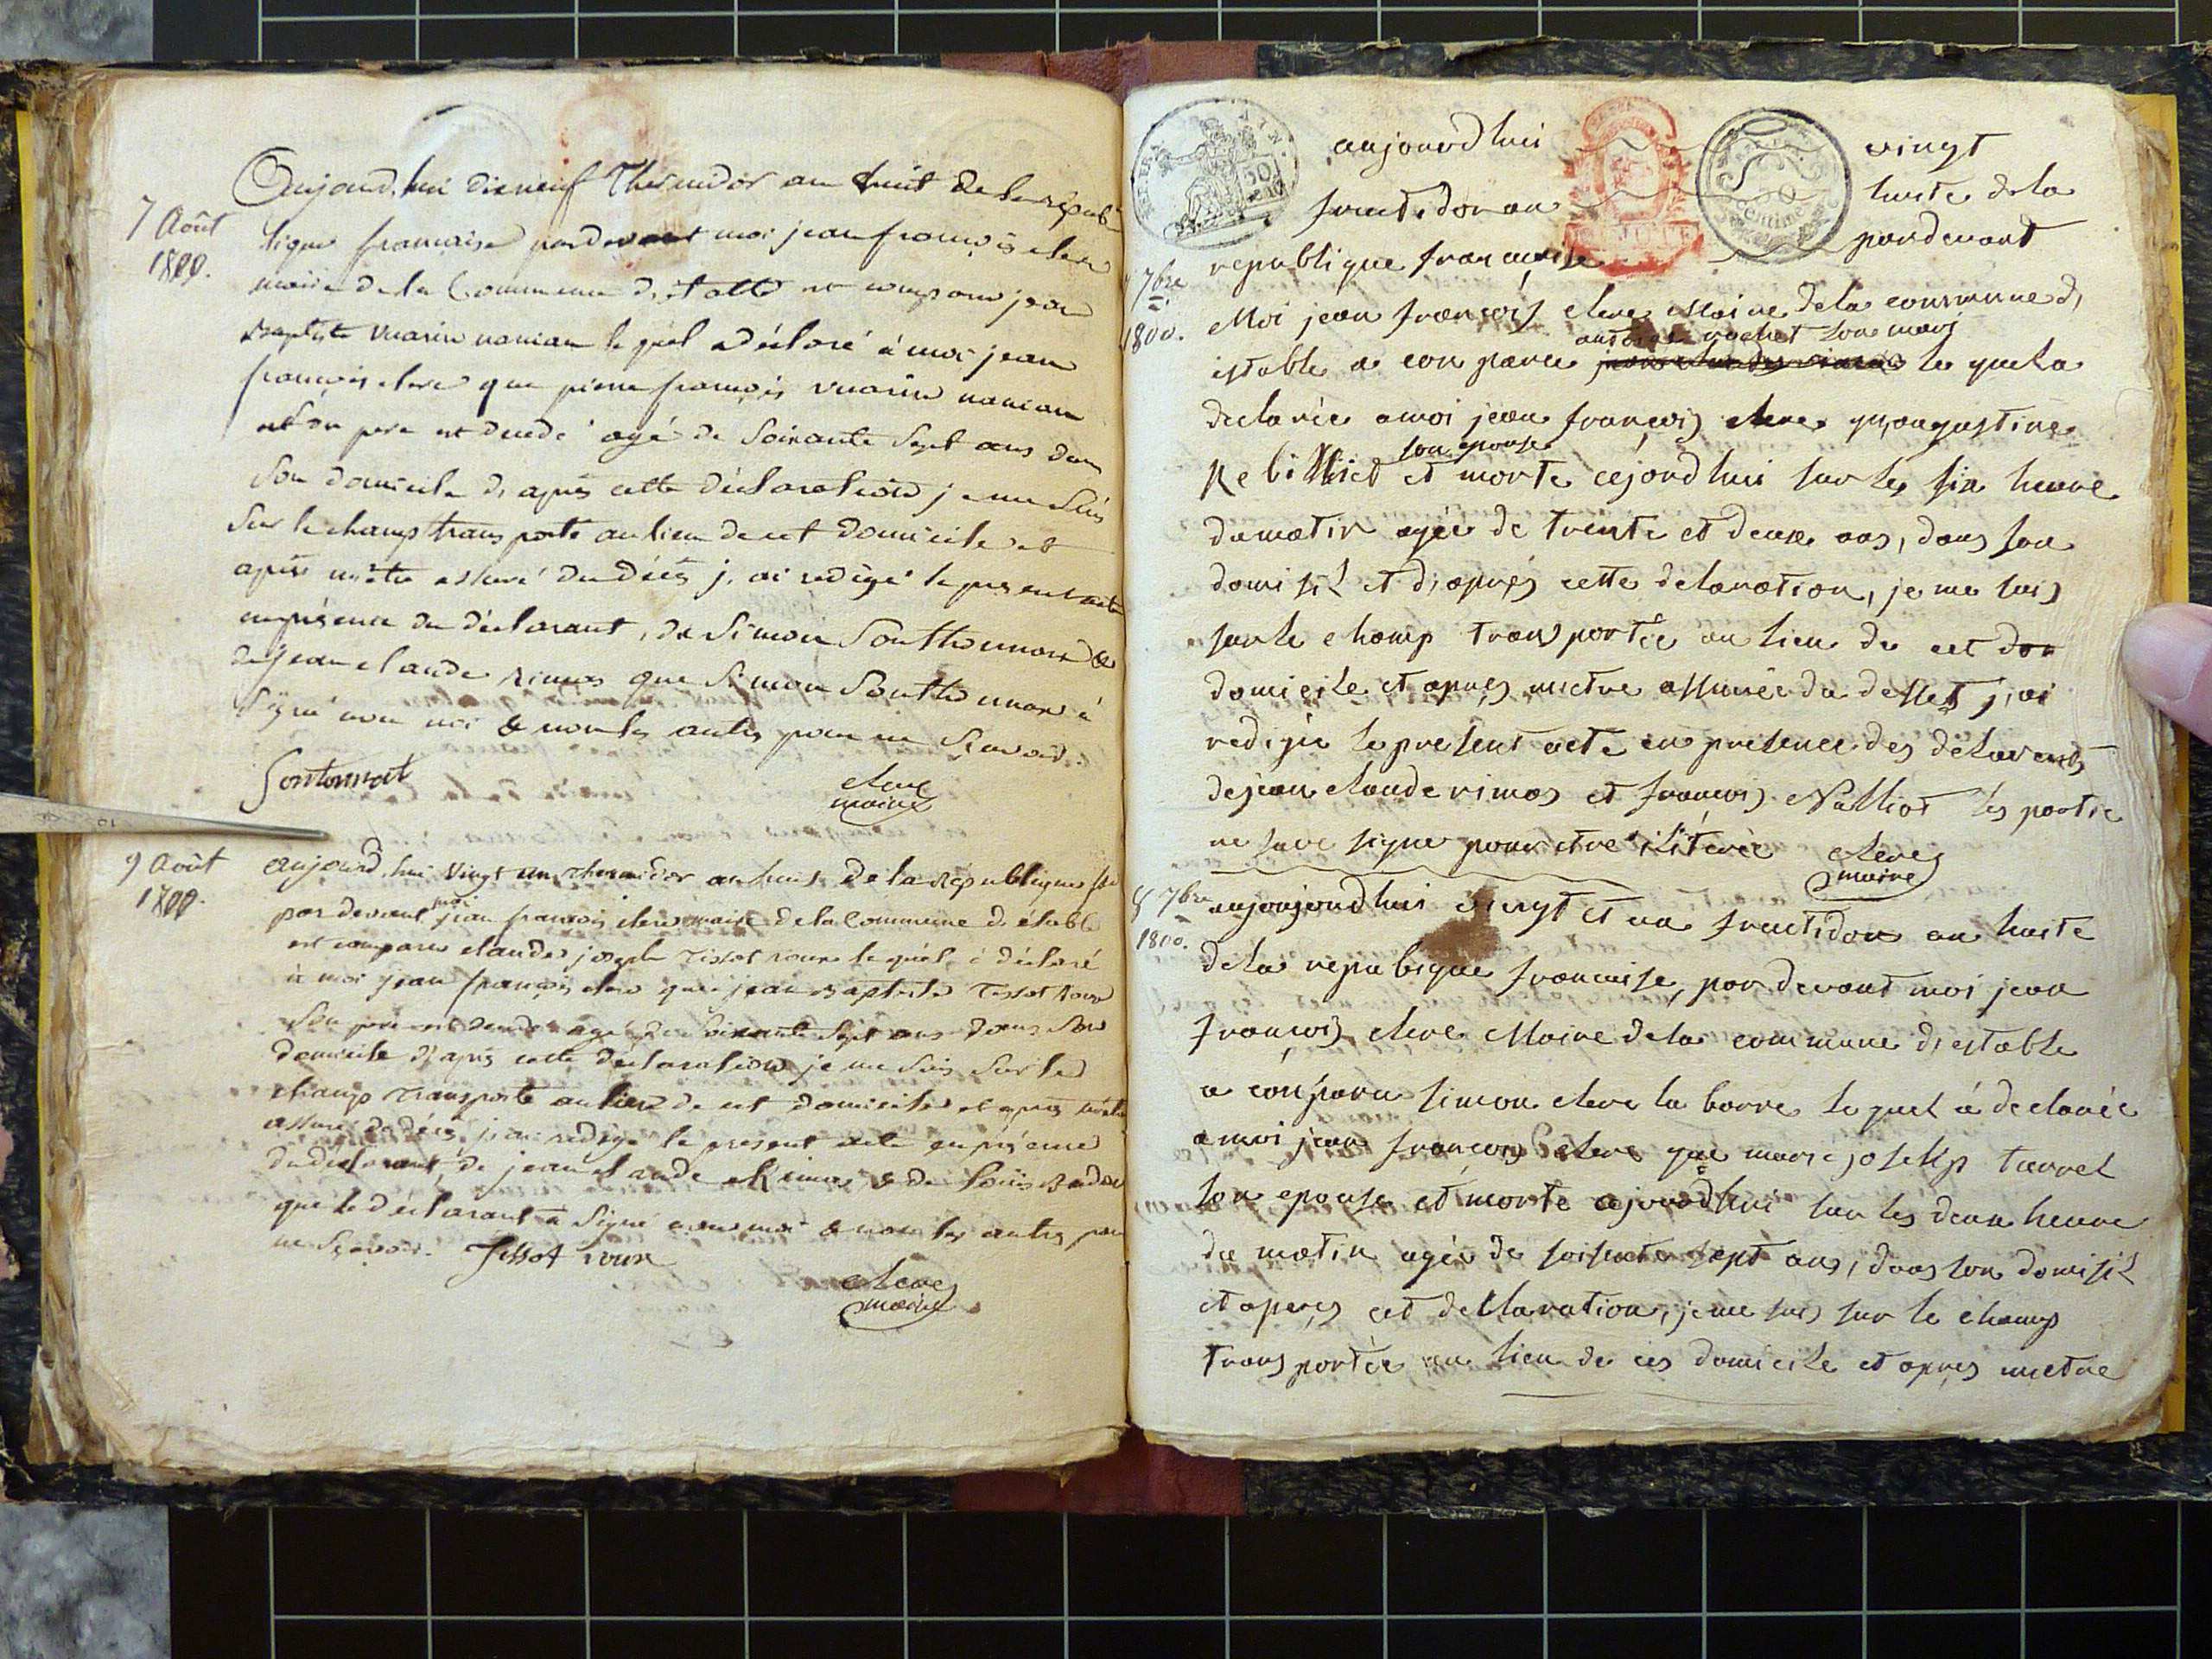 7 Août
1800.
Aujourd,hui dixneuf Thermidor an huit de la répub
lique française pardevant moi jean françois clerc
maire de la Commune d,étable est comparu jean
Baptiste vuarin naniam le quel a déclaré à moi jean
françois clerc que pierre françois vuarin naniam
son pere est decedé agé de soixante sept ans dans
son domicile d,après cette déclaration je me suis
sur le champ transporté au lieu de cet domicile et
après m'être assuré du décès j,ai redigé le present acte
en présence du déclarant, de Simon Sonthonnax &
de jean claude rimas que Simon Sonthonnax à
signé avec moi & non les autres pour ne scavoir.
Sontonnat
clerc
maire
9 Août
1800.
aujourd,hui vingt un thermidor an huit de la République
par devant moi jean françois clerc maire de la Commune d,étable
est comparu claude joseph Tissot roux le quel à déclaré
à moi jean françois clerc que jean Baptiste Tissot roux
son pere est decedé agé de soixante sept ans dans son
domicile d,après cette déclaration je me suis sur le
champ transporté au lieu de cet domicile et après m'être
assuré du décès j,ai redigé le present acte en présence
du déclarant, de jean claude Rimas & de Loüis
que le déclarant à signé avec moi & non les autres pour
ne sçavoir. Tissot roux
clerc
maire
aujourdhui vingt
fructidor an huite de la
republique francaise pardevant
7bre
1800.
Moi jean françois clerc Maire de la commune d,
estable a conparu antoine rochet son mari le quel a
declarée a moi jean françois clerc qu,augustine
Rebilliet son epouse et morte cejordhui sur les six heure
du matin agée de trente et deux ans, dans son
domisil et d,après cette declaration, je me suis
sur le champ transportée au lieu de cet dom
domicile et apres metre assurée du desset j,ai
redigée le present acte en presence des delarents
de jean claude rimas et françois Nalliot les partie
ne save signe pour etre iliterée clerc
maire
8 7bre
1800.
aujoujourdhui vingt et un fructidor an huite
de la repubique francaise, par devant moi jean
françois clerc Maire de la commune d,estable
a conparu simon clerc la barre le quel à declarée
a moi jean françois clerc que marie josethp turrel
son epouse et morte ajourdhui sur les deux heure
du matin agée de soisente sept ans, dans son domisil
et apres cet decllaration, je me suis sur le champ
transportée au lieu de ces domicile et apres metre